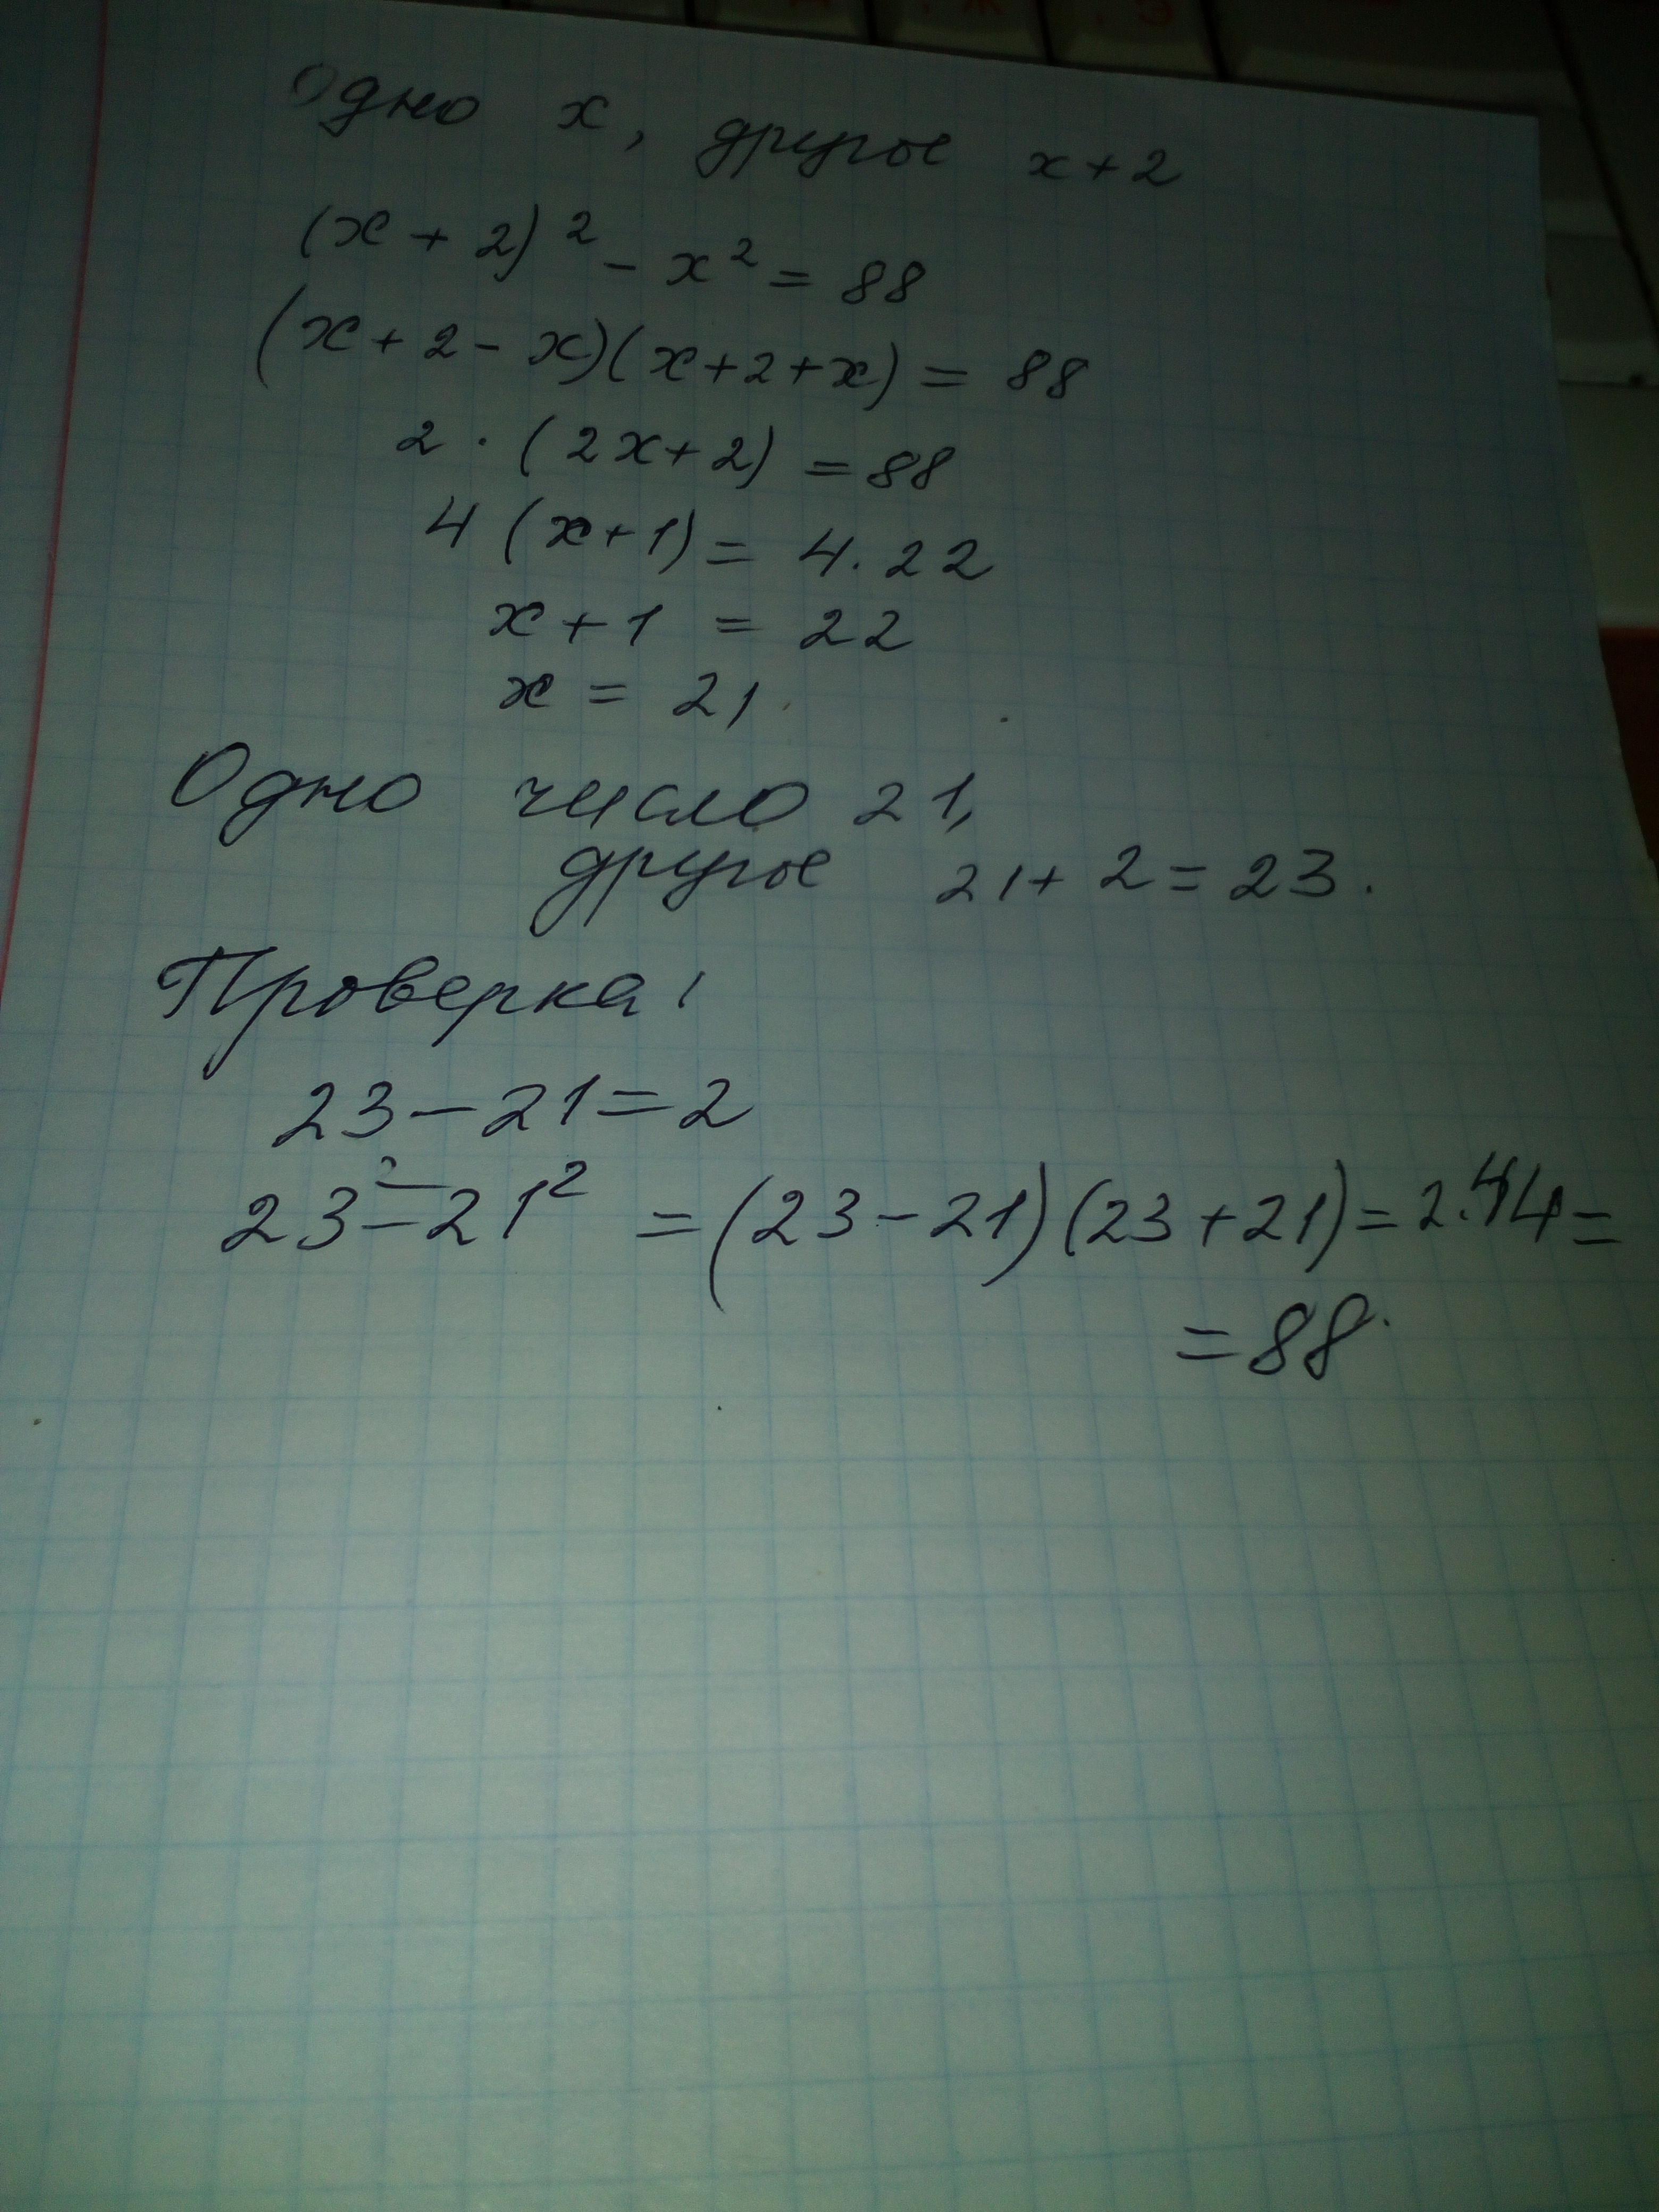 Одно x, другое x+2
(x+2)² - x² = 88
(x+2-x)(x+2+x) = 88
2 · (2x+2) = 88
4 (x+1) = 4.22
x+1 = 22
x = 21
Одно число 21,
другое 21+2=23.
Проверка!
23-21=2
23²-21² =(23-21)(23+21)=2.44=
=88.